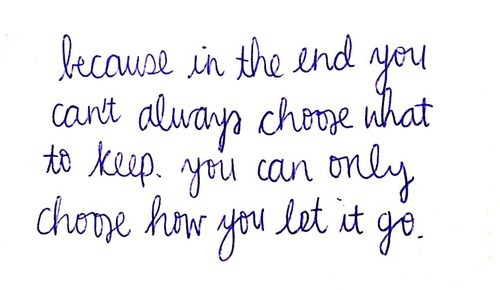 because in the end you
can't always choose what
to keep. you can only
choose how you let it go.